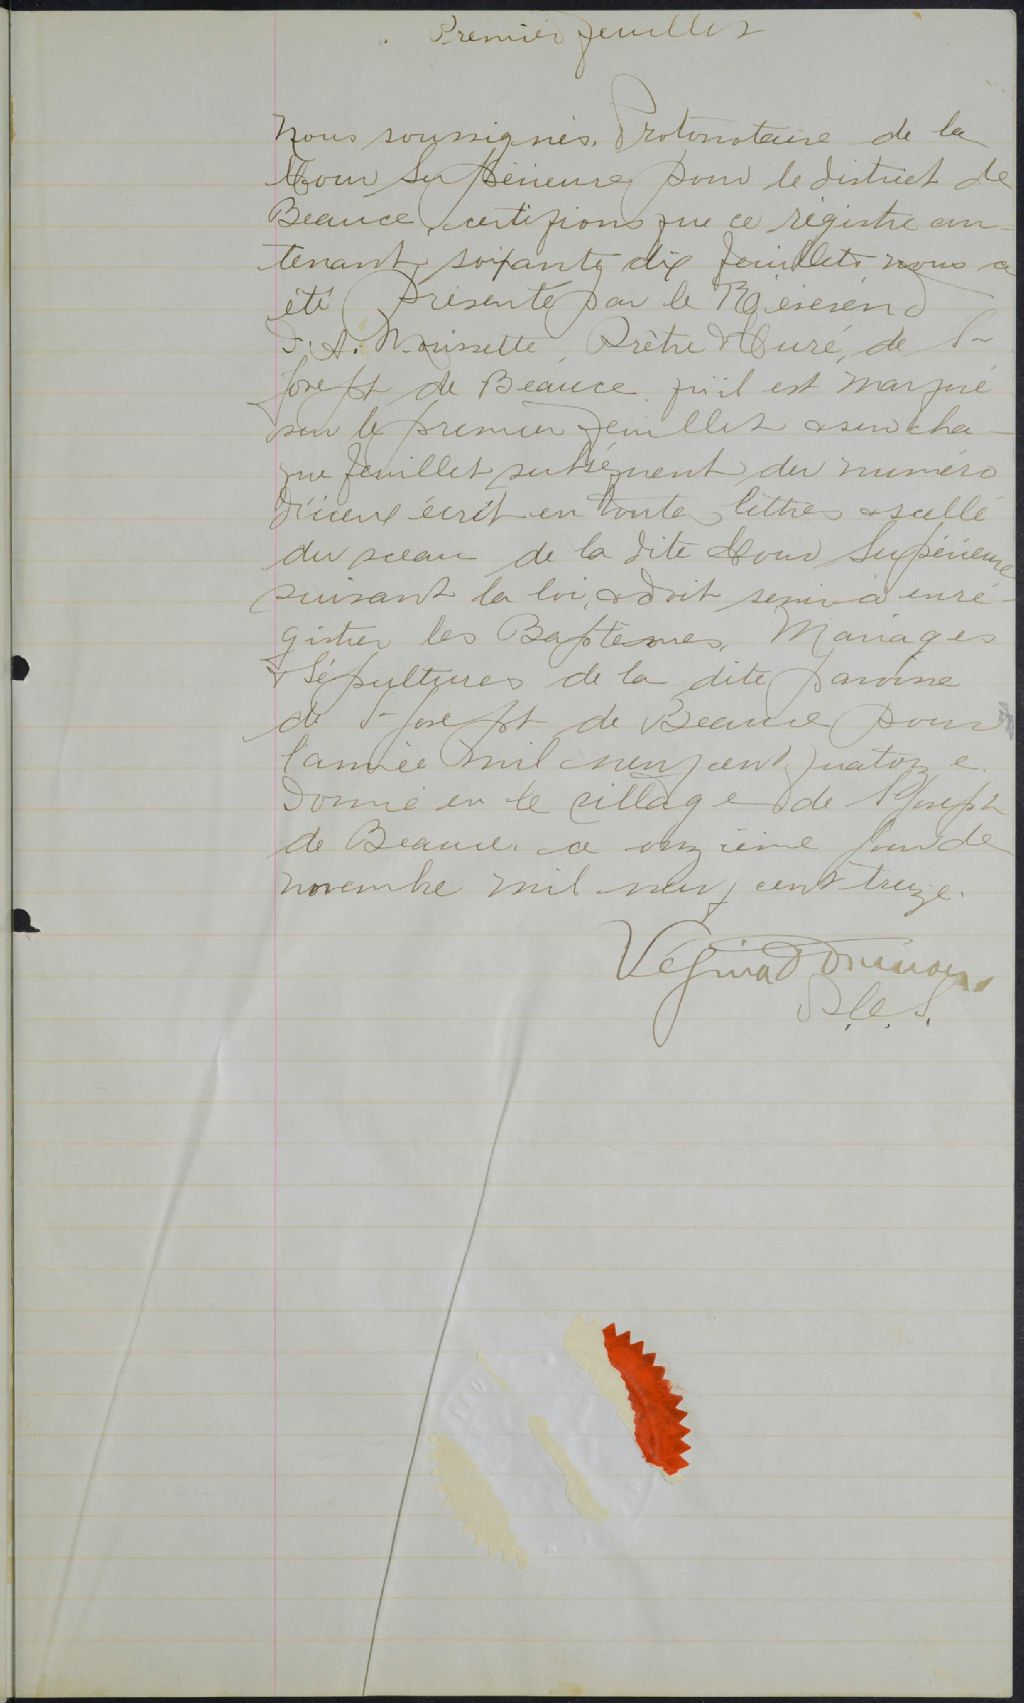 Premier feuillet
Nous soussignés, Protonotaire de la
Cour Supérieure pour le district de
Beauce, certifions que ce régistre con-
tenant soixante dix feuillets nous a
été présenté par le Révérend
J. A. Prêtre & Curé, de St
Joseph de Beauce, qu'il est marqué
sur le premier feuillet & sur cha-
que feuillet subséquent du numéro
d'iceux écrit en toutes lettres & scellé
du sceau de la dite Cour Supérieure
suivant la loi, & doit servir à enré-
gistrer les Baptêmes, Mariages
& Sépultures de la dite paroisse
de St Joseph de Beauce pour
l'année mil neuf cent quatorze.
Donné en le village de St Joseph
de Beauce, ce onzième jour de
novembre mil neuf cent treize.
P.C.S.